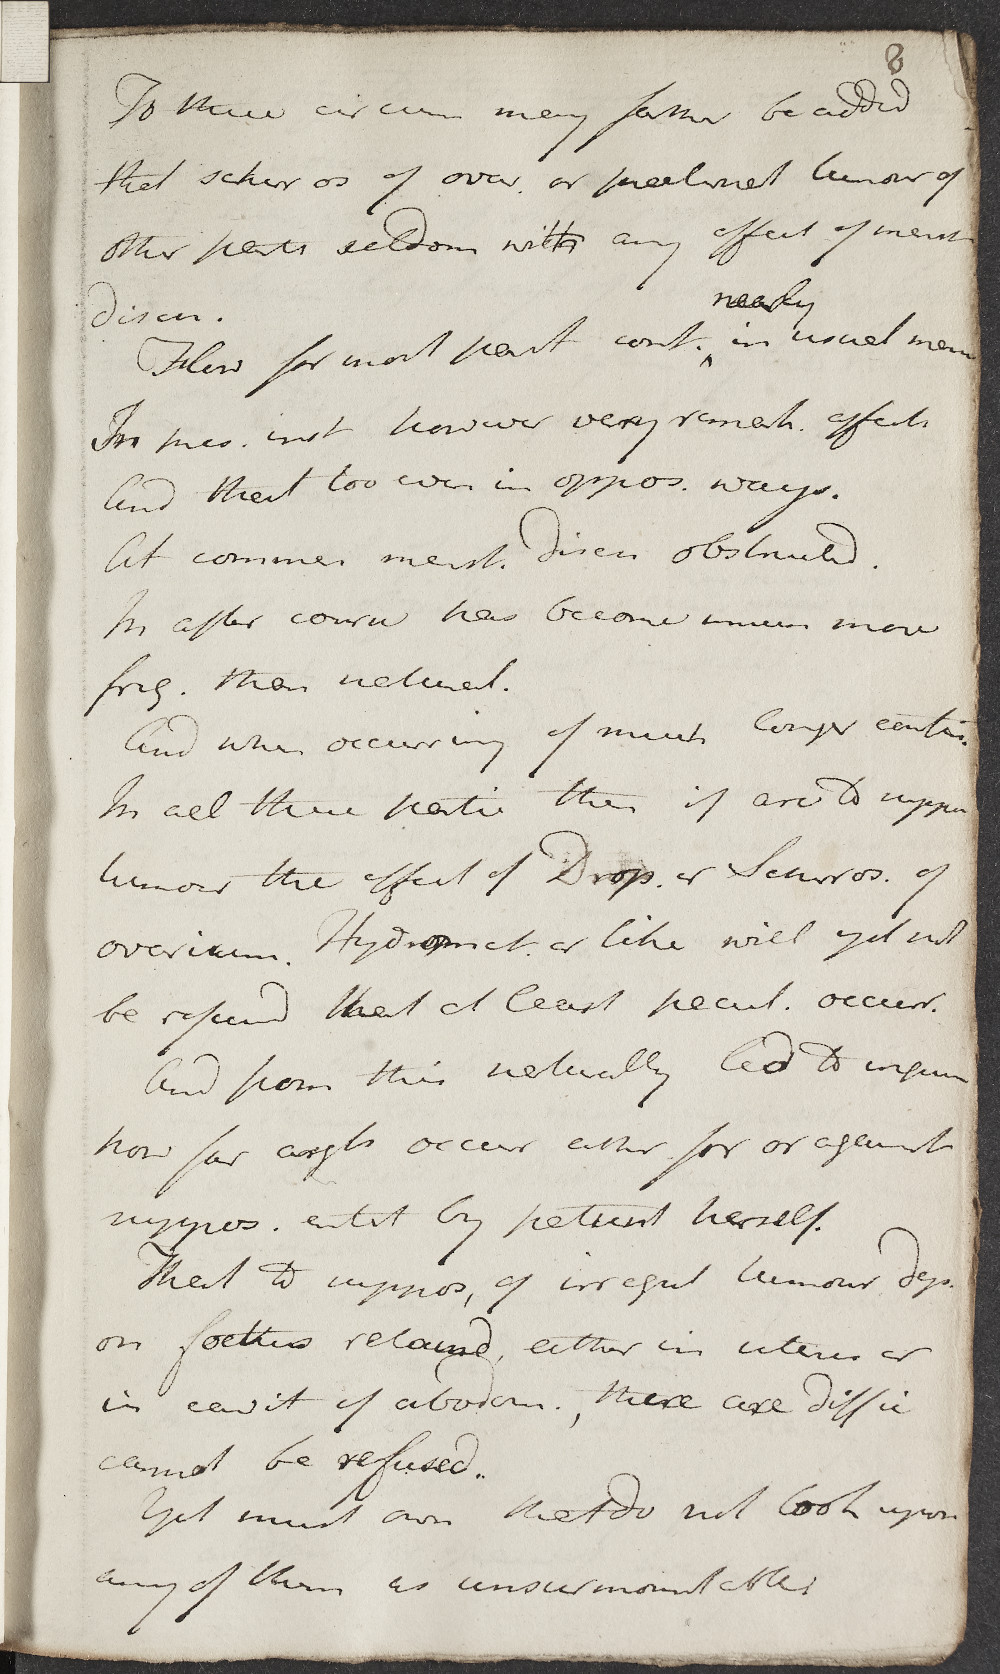 8
To these circum may farther be added
that schirros of ovar. or preternat tumour of
other parts seldom with any effect of menst
discu.
nearly
Flow for most part cont. ^ in usual mann
In pres. inst however very remark. effects
And that too even in oppos. ways.
At commen menst. discu obstructed.
In after course has become much more
freq. than natural.
And when occurring of much longer contin.
In all these partic then if are to suppo
tumour the effect of Drop. or Schirros. of
ovarium. Hydromet. or like will yet not
be refused that at least pecul. occurr.
And from this naturally led to inquire
how far aught occur either for or against
suppos. entert by patient herself.
That to suppos, of irregul tumour dep.
on foetus retained, either in uterus or
in cavit of abodom., there are diffic
cannot be refused.
Yet must own that do not look upon
any of them as unsurmountables